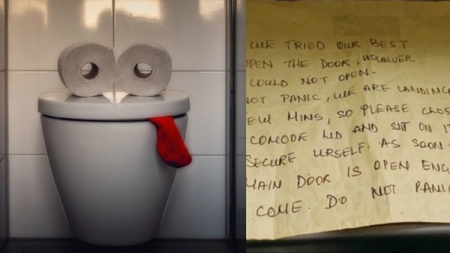 WE TRIED OUR BEST
OPEN THE DOOR, HOWEVER
COULD NOT OPEN.
NOT PANIC, WE ARE LANDING
FEW MINS, SO PLEASE CLOSE
COMODE LID AND SIT ON IT
SECURE URSELF. AS SOON
MAIN DOOR IS OPEN ENG
COME. DO NOT PANIC